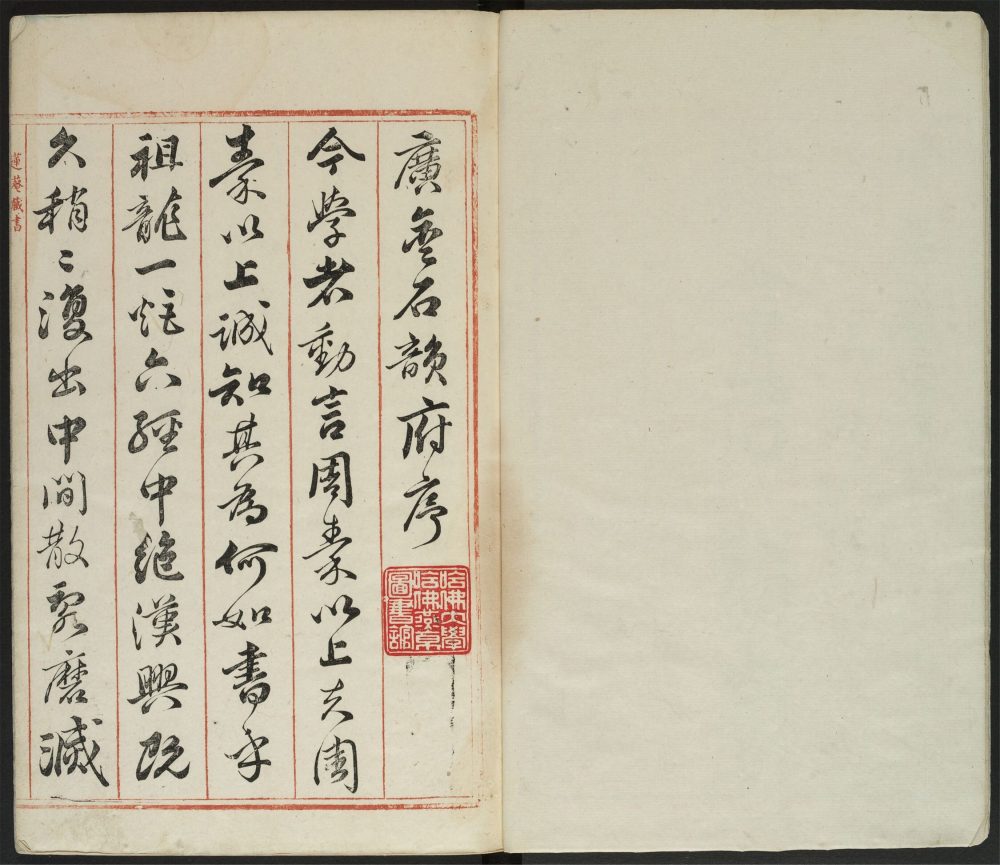 廣金石韻府序
哈佛大學哈佛燕京圖書館
今學者動言周秦以上夫周
秦以上誠知其為何如書乎
祖龍一炬六經中絕漢興既
久稍〻復出中間散磨滅
蓮菴藏書